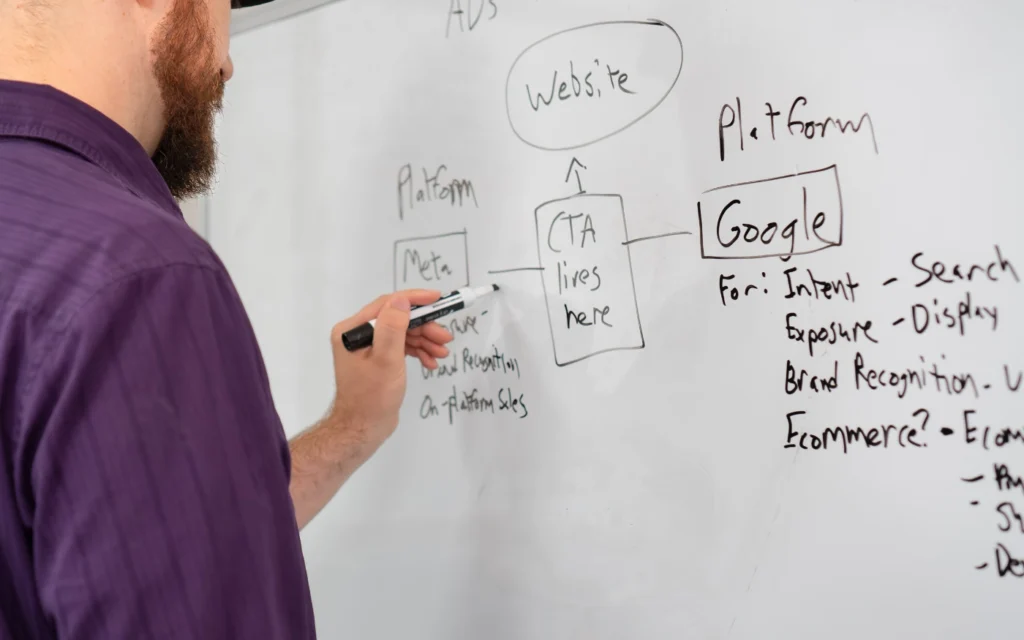 ADS
Website
Platform
Meta
Recognition
On-platform Sales
CTA
lives
here
Platform
Google
For: Intent - Search
Exposure - Display
Brand Recognition -
Ecommerce? -